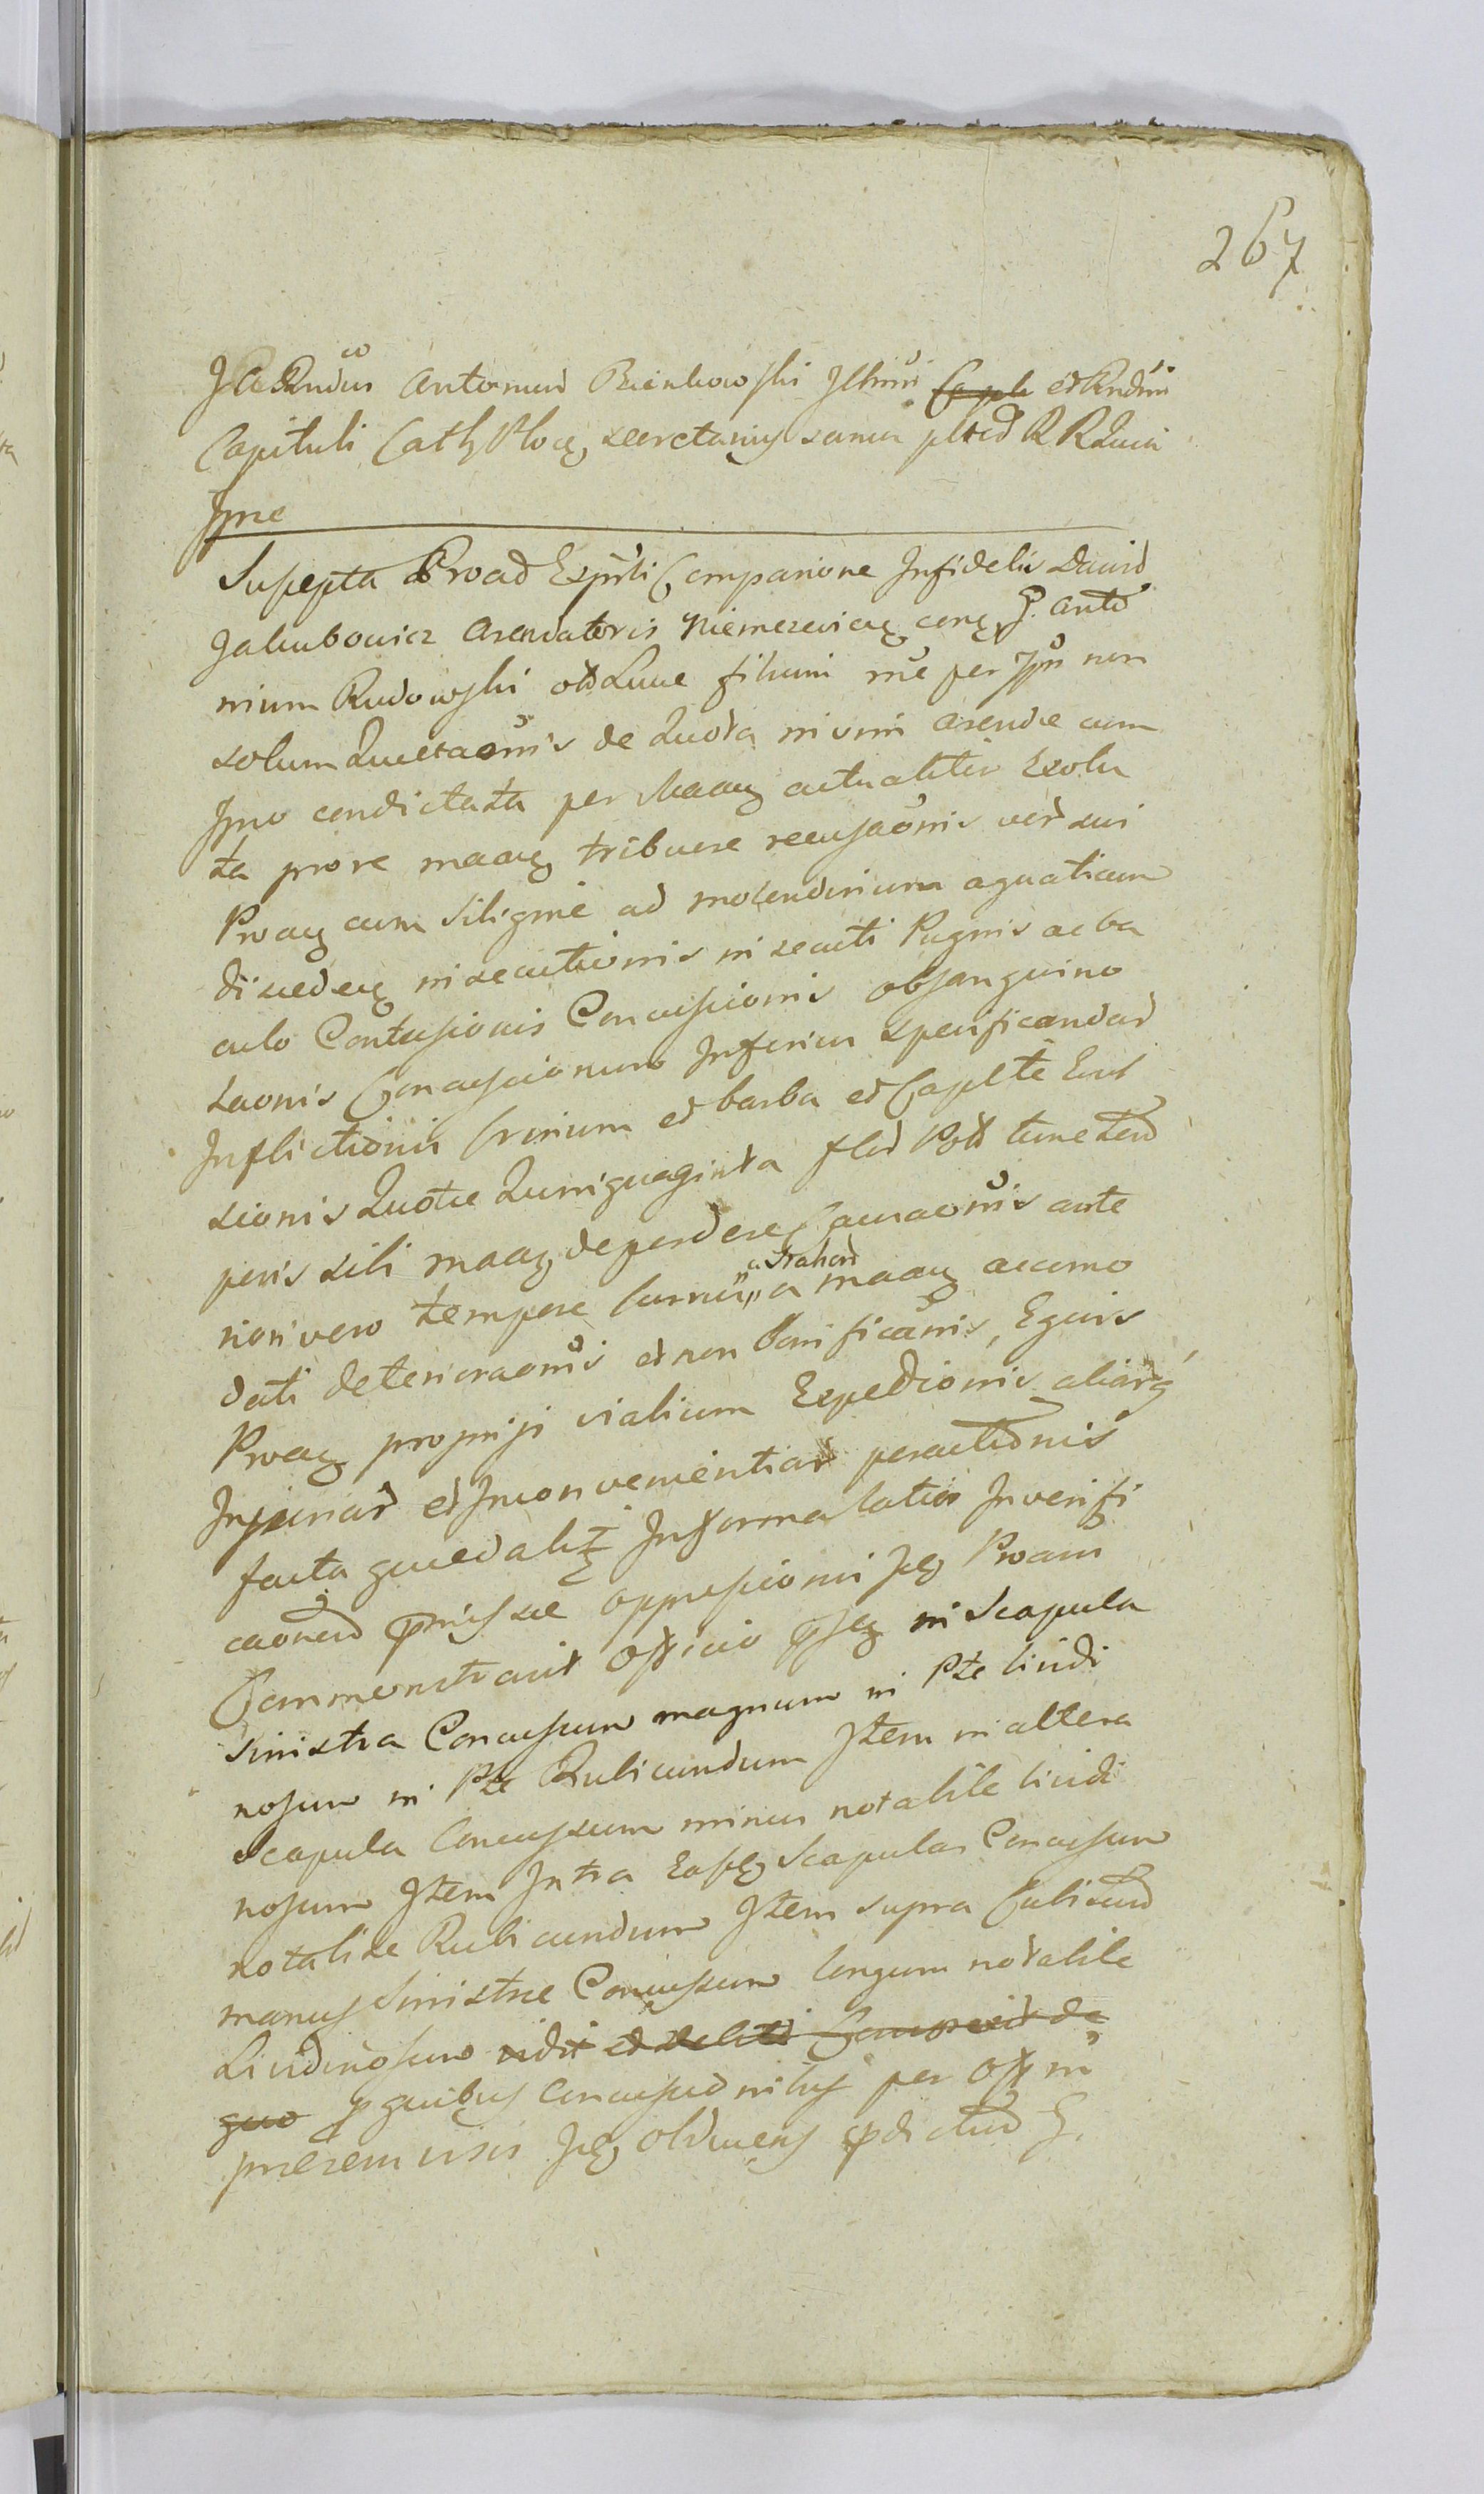 267
JARndus Antonius Bienkowski Illmi Caple et Rndmi
Capituli Cath Ploc secretarius
Jpne
Suscepta Proad Exprli Comparione Infidelis David
Jakubowicz Arendatoris Niemczevicen G. Anto
nium Rudowski filium me per Jpm non
solum de Quota niomi Arendae cum
Jpno condictata per Maarz actualiter Exolu
ta prore maarz tribuere recusaonis sui
Proarz cum Siligine ad molendinum aquaticum
discedere insecutionis insecuti Pugnis ac ba
culo Contusionis Concussionis obsanguino
laonis Concussionum Inferius specificandar
Inflictionis Crinium et barba et Capite Evul
sionis Quotae Quinquaginta flor Poll tunc tem
peris sibi maarz deperdere Causaonis ante
riori vero tempore Currum a maarz accomo
a Strahend
dati deteriorationis et non Bonificaonis, Equis
Proarz proprijs vialium Expeditionis aliarq
Injuriar et Inconvenientiar peractionis
facta quaedalitz Informa latior In verifi
caonem oppressionis Proam
Commonstravit Officio in Scapula
sinistra Concussum magnum in Pte lividi
nosum in Pte Rubicundum Item in altera
Scapula Concussum minus notabile lividi
nosum Item Intra Easq Scapulas Concussum
notabile Rubicundum Item supra Cubitum
manus Sinistrae Concussum longum notabile
Lividinosum vidit et Comperit de
quo quibus Concussionibus per Off in
praesem visis